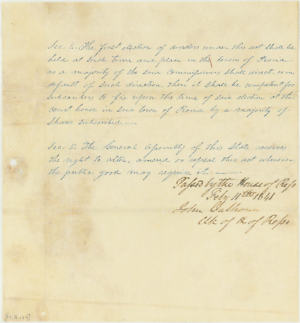 Sec 5. The first election of directors under this act shall be
held at such time and place in the town of Peoria
as a majority of the said Commissioners shall direct, in
default of such direction then it shall be competent for
subscribers to fix upon the time of said election at the
court house in said town of Peoria by a majority of
shares subscribed
Sec 6. The General Assembly of this State reserves
the right to alter, amend or repeal this act whenever
the public good may require it
Passed by the House of Reps
Feby 11th 1841
John Calhoun
Clk of H. of Reps